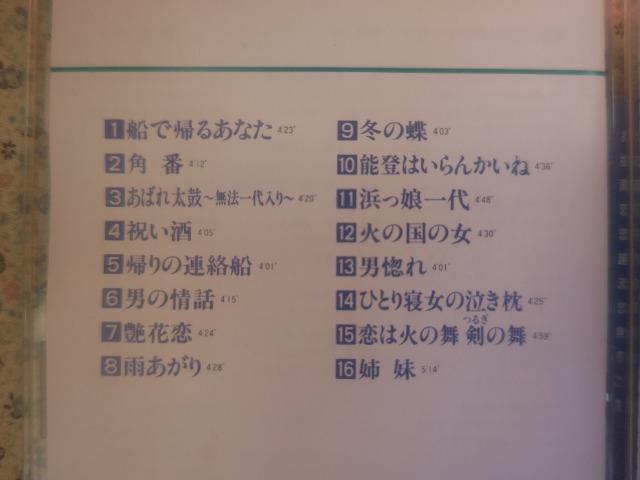 1 船で帰るあなた 4'23"
2 角番 4'12"
3 あばれ太鼓～無法一代入り～ 4'29"
4 祝い酒 4'05"
5 帰りの連絡船 4'01"
6 男の情話 4'15"
7 艶花恋 4'24"
8 雨あがり 4'28"
9 冬の蝶 4'03"
10 能登はいらんかいね 4'36"
11 浜っ娘一代 4'48"
12 火の国の女 4'30"
13 男惚れ 4'01"
14 ひとり寝女の泣き枕 4'25"
つるぎ
15 恋は火の舞 剣の舞 4'59"
16 姉妹 5'14"